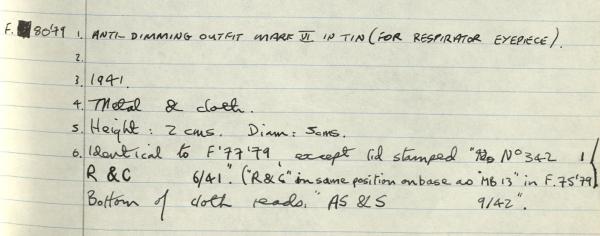 F. 80'79 1. ANTI-DIMMING OUTFIT MARK VI IN TIN (FOR RESPIRATOR EYEPIECE).
2.
3. 1941.
4. Metal & cloth.
5. Height: 2 cms. Diam: 5cms.
6. Identical to F'77'79, except lid stamped " No 342
R & C 6/41". ("R & C" in same position on base as "MB 13" in F.75'79)
Bottom of cloth reads, "AS & S 9/42".